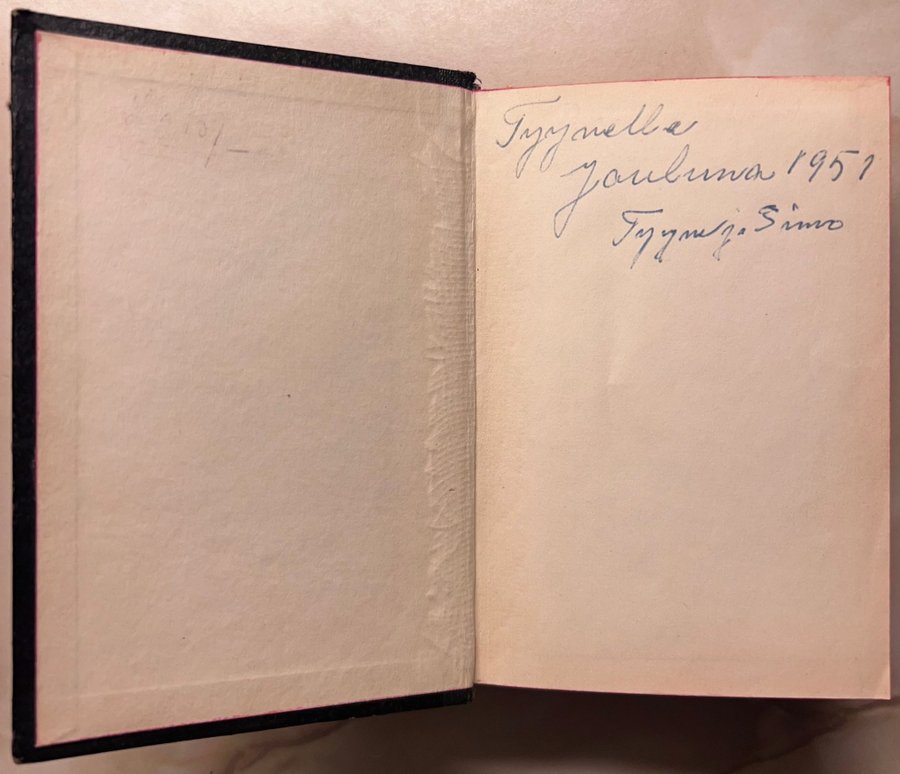 Tyynelle
Jouluna 1951
Tyyne j. Simo